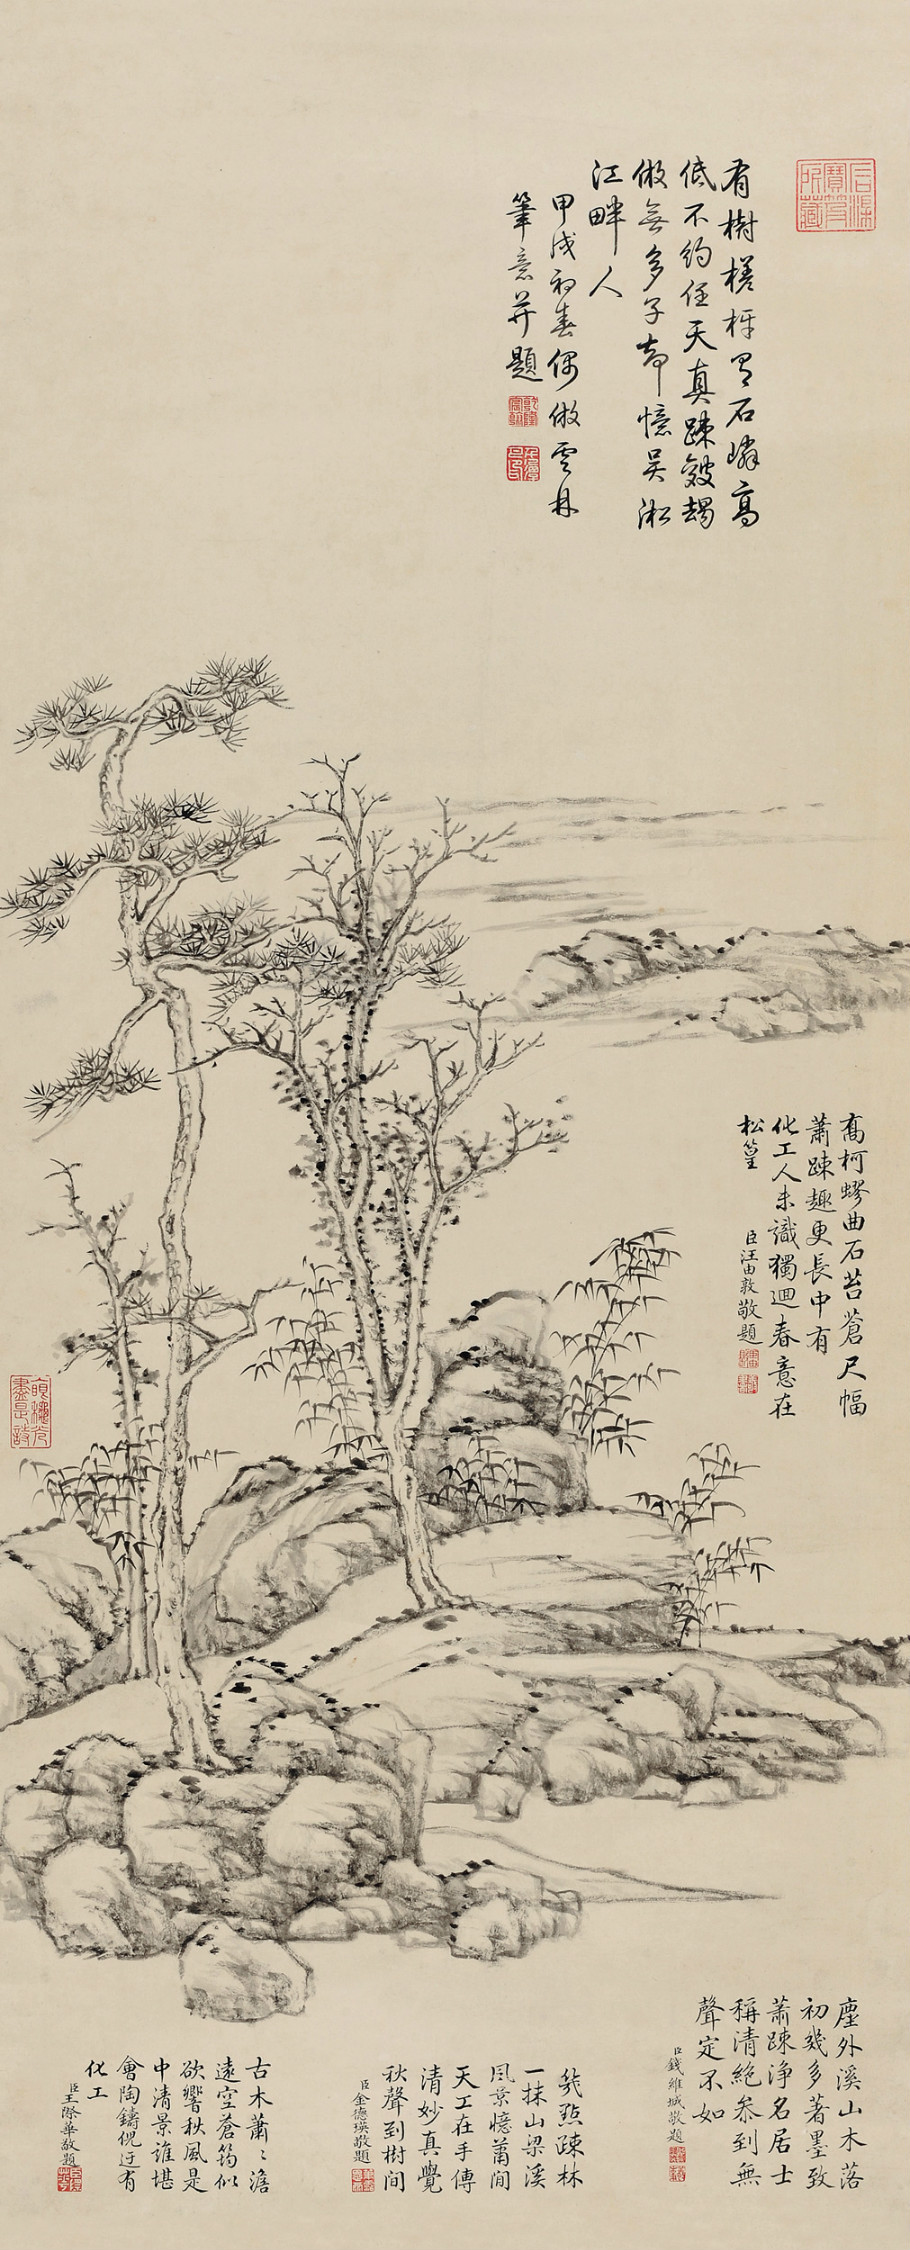 有樹槎枒有石嶙高
低不約任天真踈皴
倣無多子却憶吴淞
江畔人
甲戌初春偶倣雲林
筆意并題
高柯蟉曲石苔蒼尺幅
蕭踈趣更長中有
化工人未識獨迴春意在
松篁
臣汪由敦敬題
塵外溪山木落
初幾多著墨致
蕭踈浄名居士
稱清絶叅到無
聲定不如
臣錢維城敬題
幾點踈林
一抹山梁溪
風景憶蕭間
天工在手傳
清妙真覺
秋聲到樹間
臣金德瑛敬題
古木蕭〻澹
遠空蒼筠似
欲響秋風是
中清景誰堪
會陶鑄倪迂有
化工
臣王際華敬題